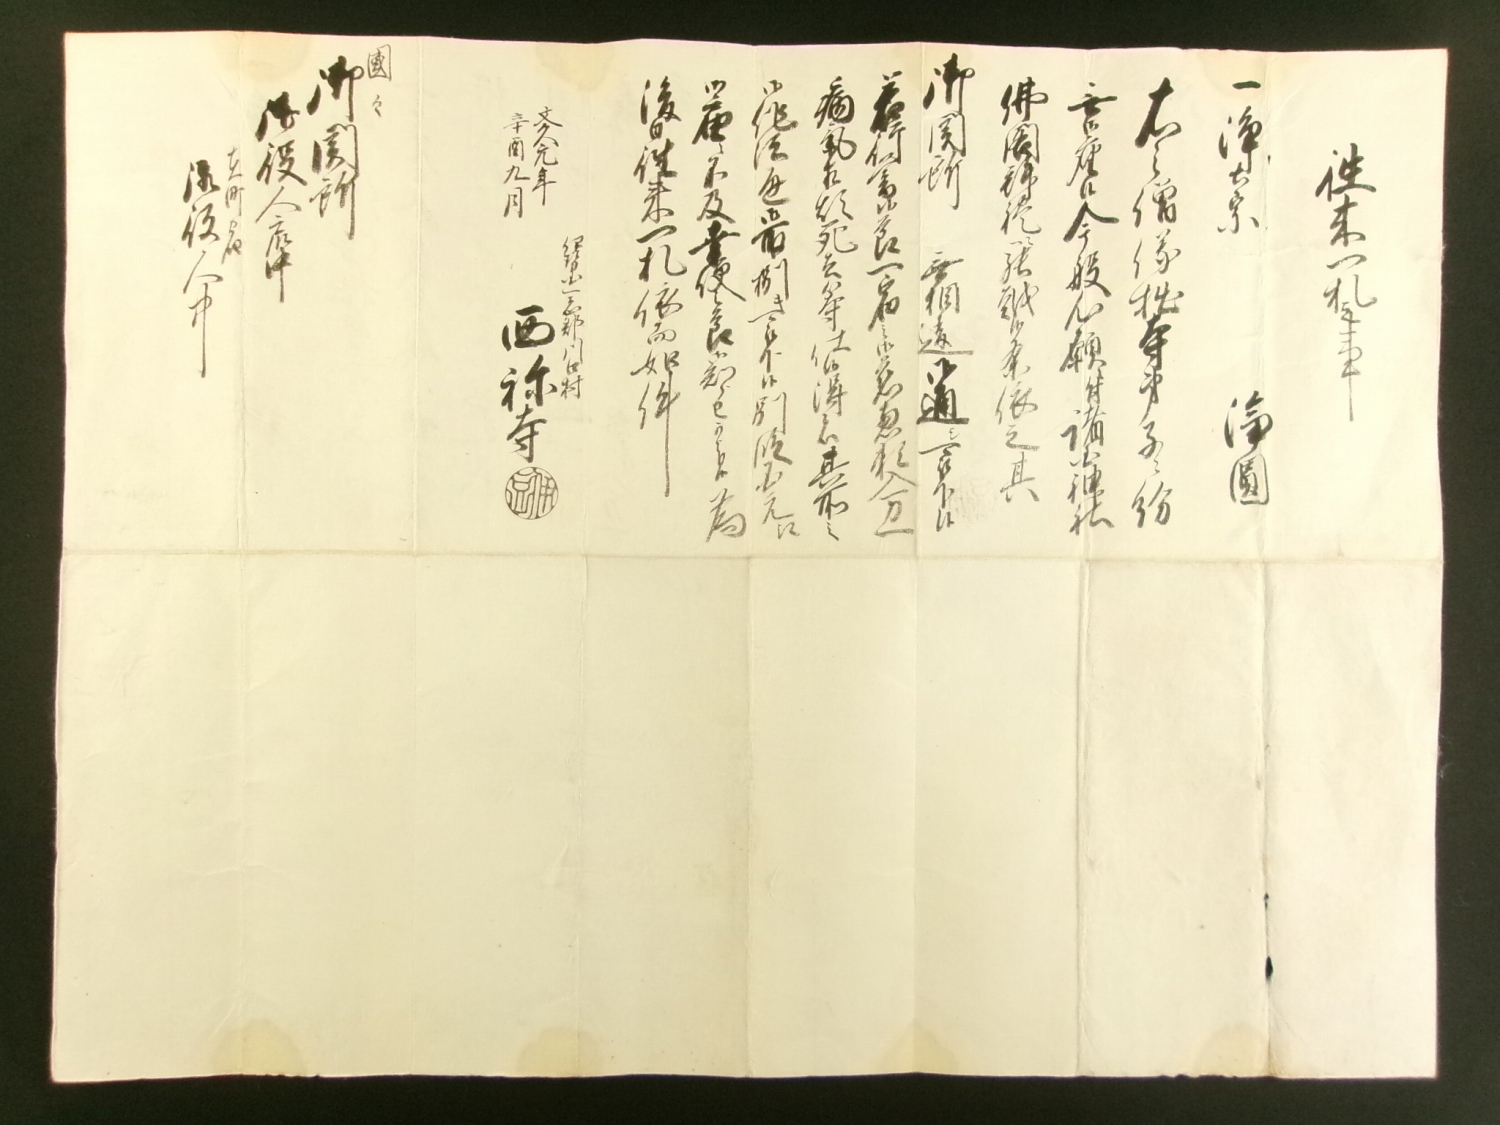 往来一札之事
一浄土宗 淪圓
右之僧儀拙寺弟子ニ紛
無御座候今般心願ニ付諸神社
佛閣拝礼ニ罷越候条依之其
御関所 無相違御通シ可被下候
若行暮候節一宿之御慈悲頼入万一
病気相煩死去等仕候得者其所之
御作法通御取捌キ可被下候別段国元江
御届ニ不及幸便之節御知らせ可被下候為
後日往来一札依而如件
文久元年
辛酉九月
郡 村
西 寺
國々
御関所
御役人衆中
在町宿
御役人中